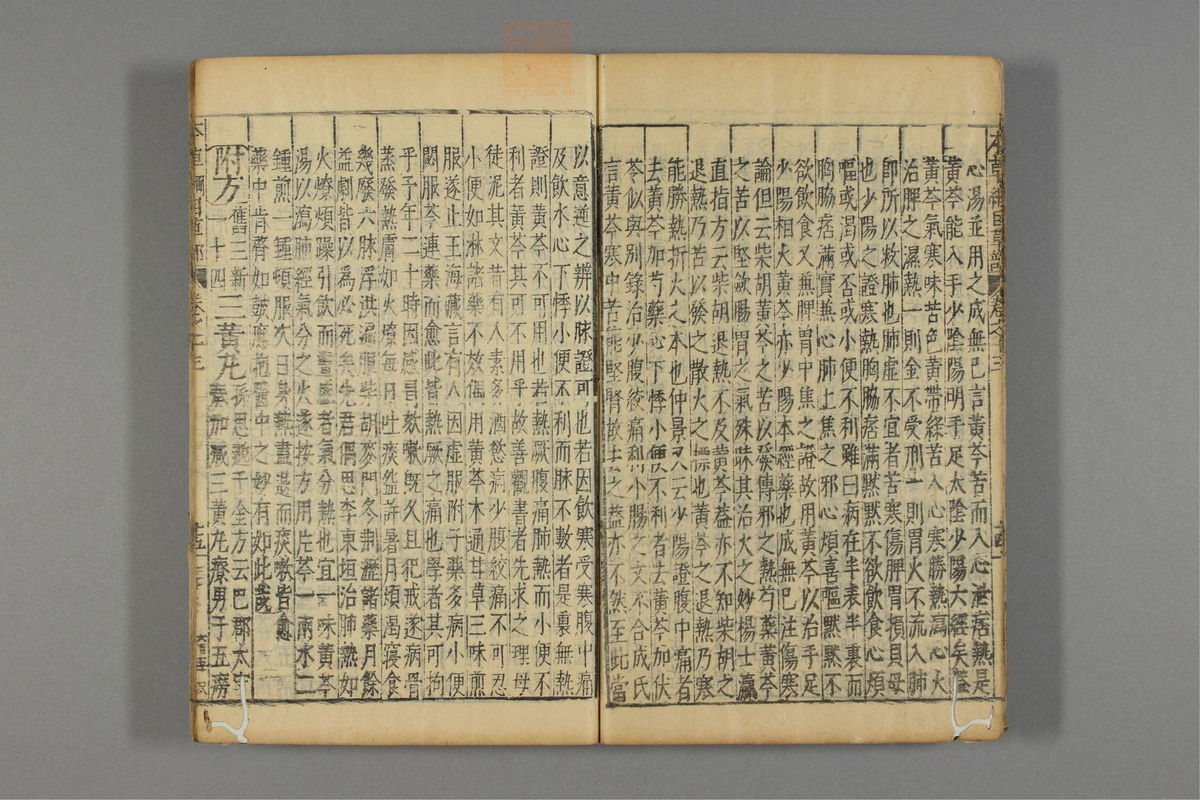 心湯並用之成無已言黃芩苦而入心泄痞熱是
黃芩能入手少陰陽明手足太陰少陽六經矣蓋
黃芩氣寒味苦色黃帶綠苦入心寒勝熱瀉心火
治脾之濕熱一則金不受刑一則胃火不流入肺
即所以救肺也肺虛不宜者苦寒傷脾胃損其母
也少陽之證寒熱胸脇痞滿默默不欲飲食心煩
嘔或渴或否或小便不利雖曰病在半表半裏而
胸脇痞滿實兼心肺上焦之邪心煩喜嘔默默不
欲飲食又兼脾胃中焦之證故用黃芩以治手足
少陽相火黃芩亦少陽本經藥也成無已註傷寒
論但云柴胡黃芩之苦以發傳邪之熱芍藥黃芩
之苦以堅斂腸胃之氣殊昧其治火之妙楊士瀛
直指方云柴胡退熱不及黃芩蓋亦不知柴胡之
退熱乃苦以發之散火之標也黃芩之退熱乃寒
能勝熱折火之本也仲景又云少陽證腹中痛者
去黃芩加芍藥心下悸小便不利者去黃芩加茯
苓似與別錄治少腹絞痛利小腸之文不合成氏
言黃芩寒中苦能堅腎故去之蓋亦不然至此當
以意逆之辨以脉證可也若因飲寒受寒腹中痛
及飲水心下悸小便不利而脉不數者是裏無熱
證則黃芩不可用也若熱厥腹痛肺熱而小便不
利者黃芩其可不用乎故善觀書者先求之理毋
徒泥其文昔有人素多酒慾病少腹絞痛不可忍
小便如淋諸藥不效偶用黃芩木通甘草三味煎
服遂止王海藏言有人因虛服附子藥多病小便
閟服芩連藥而愈此皆熱厥之痛也學者其可拘
乎予年二十時因感冒欬嗽既久且犯戒遂病骨
蒸發熱膚如火燎每日吐痰盌許暑月煩渴寢食
幾廢六脉浮洪遍服柴胡麥門冬荊瀝諸藥月餘
益劇皆以為必死矣先君偶思李東垣治肺熱如
火燎煩躁引飲而晝盛者氣分熱也宜一味黃芩
湯以瀉肺經氣分之火遂按方用片芩一兩水二
鍾煎一鍾頓服次日身熱盡退而痰嗽皆愈
藥中肯綮如鼓應桴醫中之妙有如此哉
附方舊三新一十四三黃丸孫思邈千金方云巴郡太守奏加減三黃丸療男子五癆